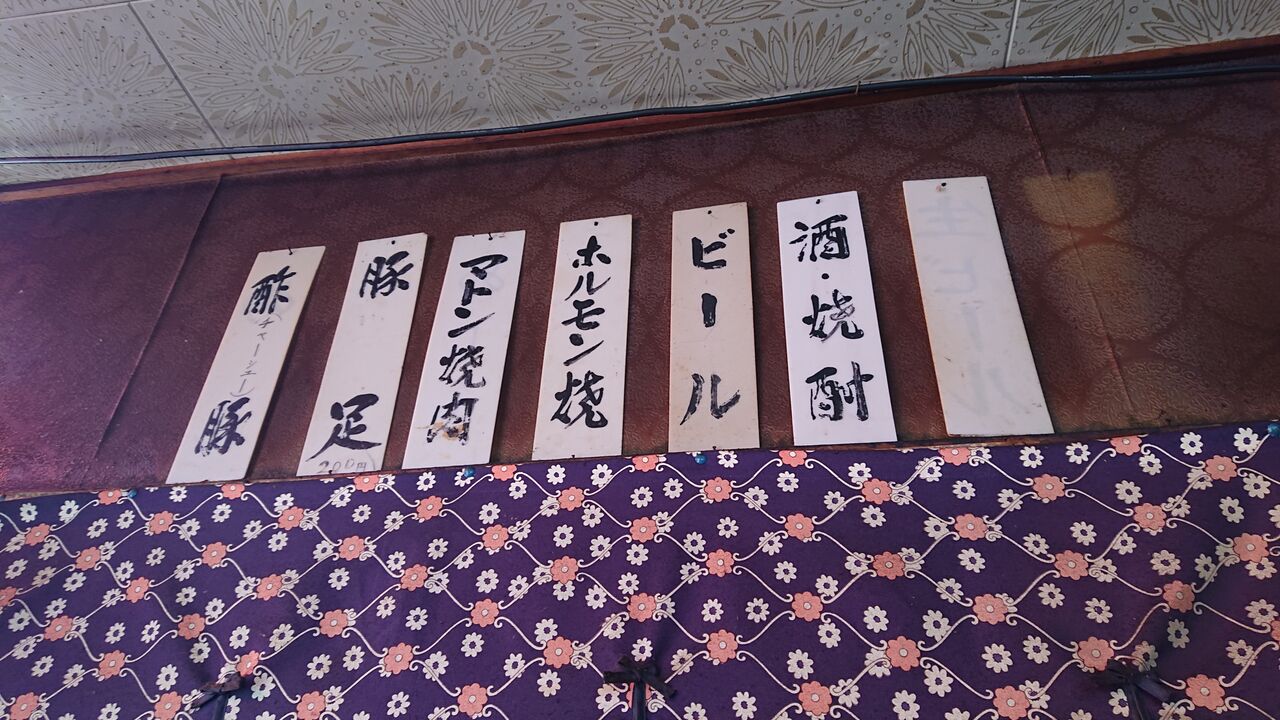 生ビール
酒・焼酎
ビール
ホルモン焼
マトン焼肉
豚足
200円
酢豚